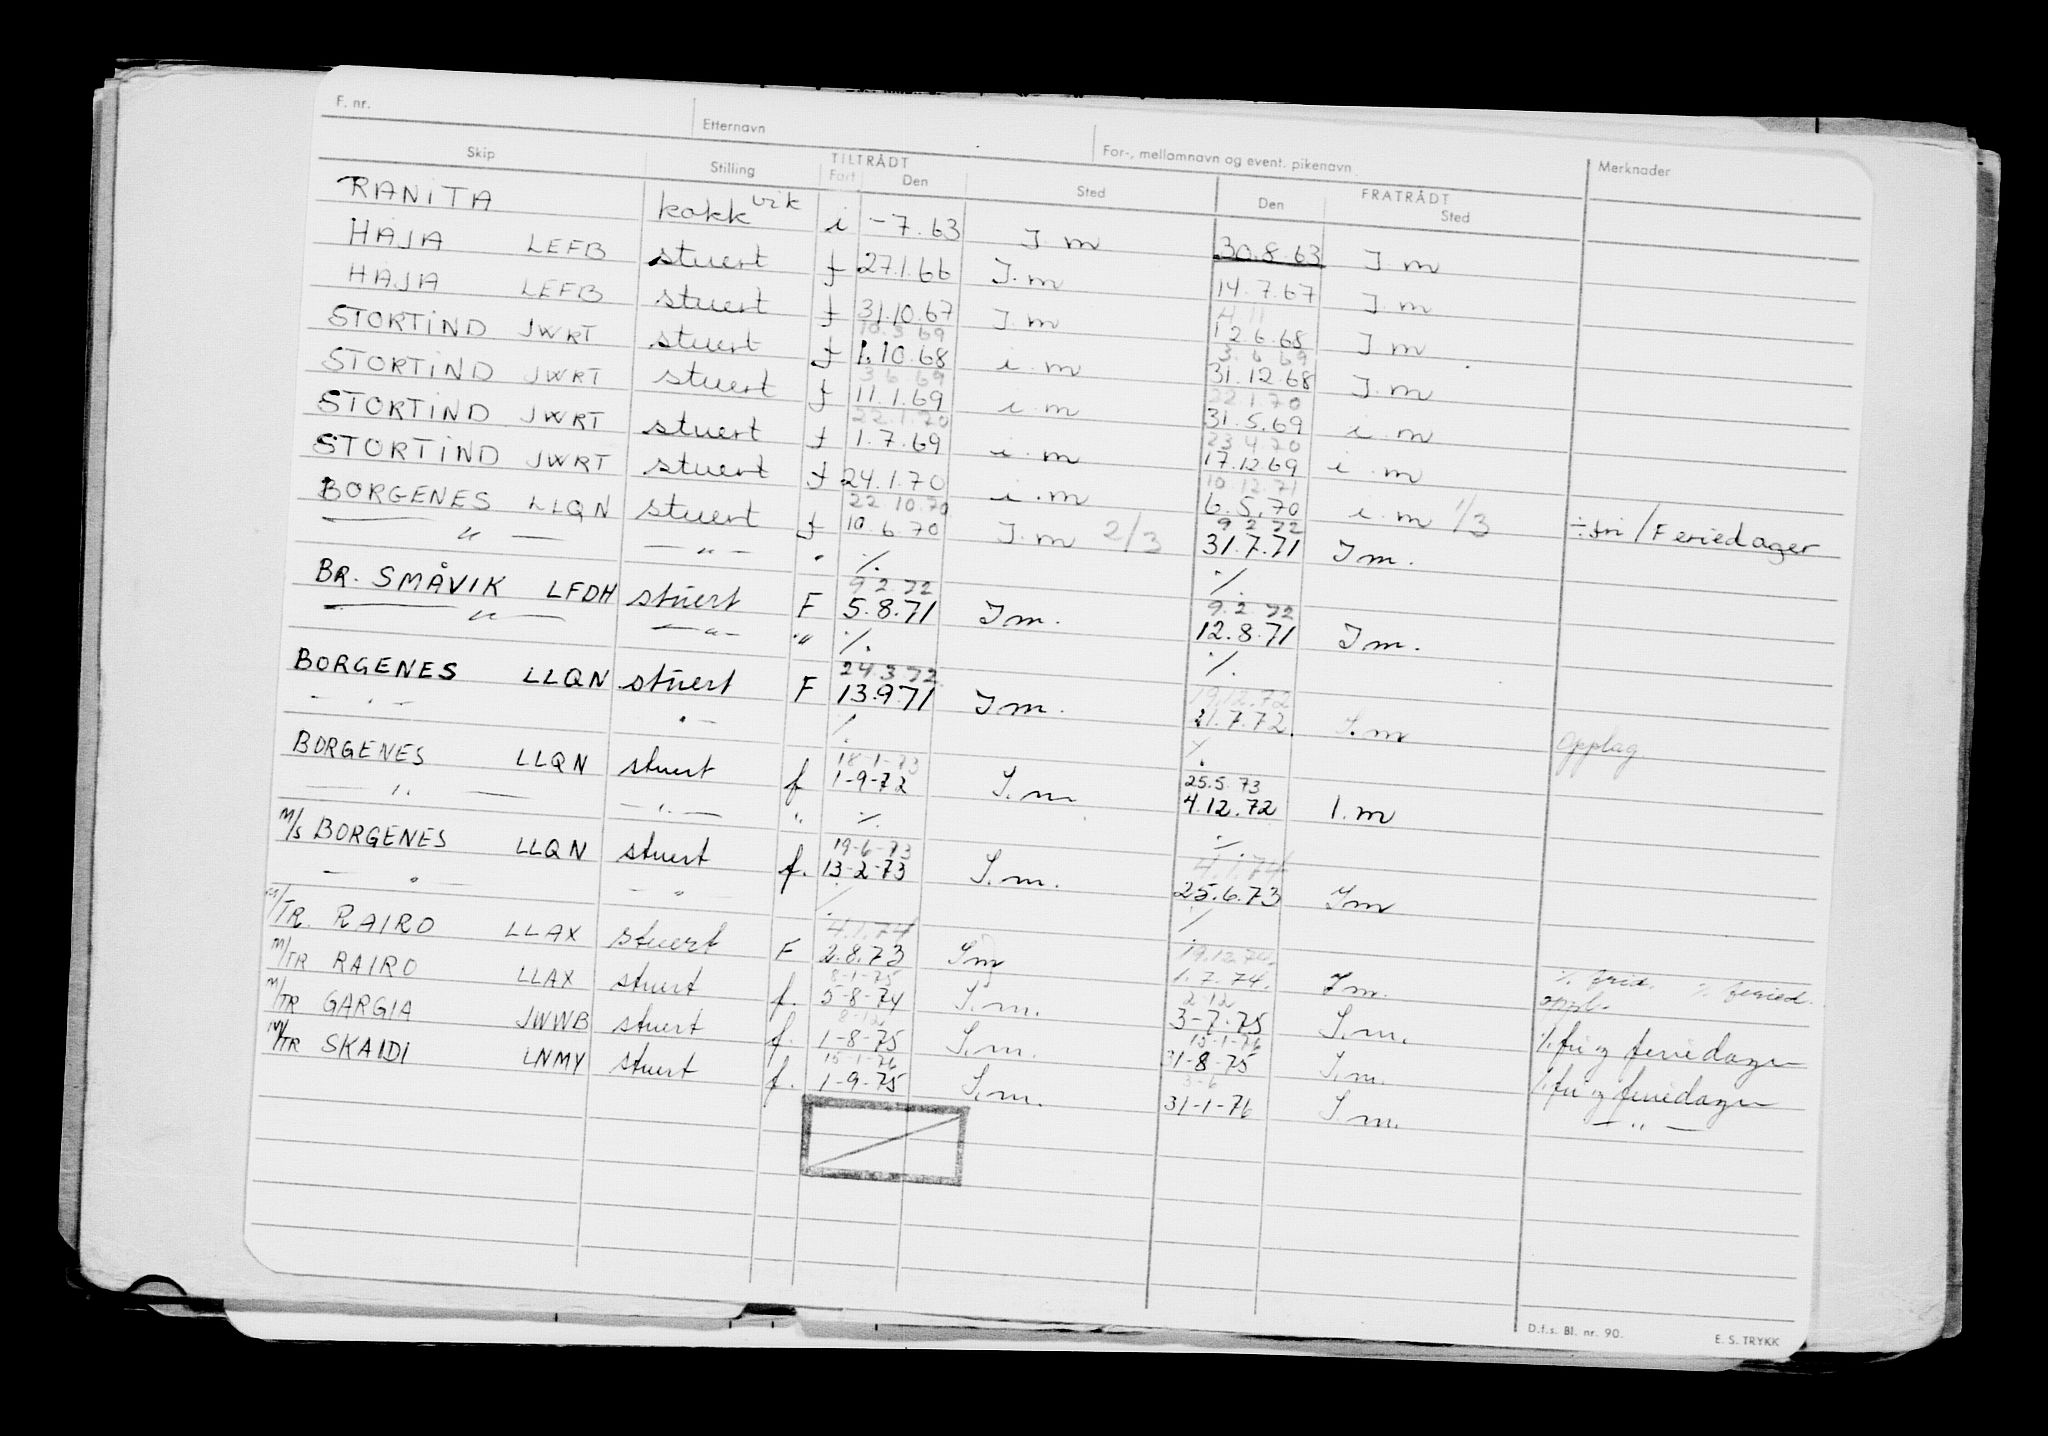 F. nr. Etternavn For-, mellomnavn og event. pikenavn
Skip Stilling TILTRÅDT Fart Den Sted FRATRÅDT Den Sted Merknader
RANITA kokk vik i -7.63 I m 30.8.63 I m
HAJA LEFB stuert f 27.1.66 I.m 14.7.67 I m
HAJA LEFB stuert f 31.10.67 I.m 12.6.68 I m
10.3 69 3.6 69
STORTIND JWRT stuert f 1.10.68 i.m 31.12.68 I.m
3.6.69 22 1.70
STORTIND JWRT stuert f 11.1.69 i.m 31.5.69 i.m
22.1.70 23 4 70
STORTIND JWRT stuert f 1.7.69 i.m 17.12.69 i.m
10.12.71
STORTIND JWRT stuert f 24.1.70 i.m 6.5.70 i.m 1/3
22.10.70 9 2 72
BORGENES LLQN stuert f 10.6.70 I.m 2/3 31.7.71 Im. ÷ fri/Feriedager
— " — — " — " ·/. ·/.
9 2 72 9.2 72
BR. SMÅVIK LFDH stuert F 5.8.71 Im. 12.8.71 Im.
— " — — " — " ·/. ·/.
24 3 72 19.12.72
BORGENES LLQN stuert F 13.9.71 Im. 21.7.72. I.m Opplag
— " — " — ·/. ·/.
18-1-73 25.5.73
BORGENES LLQN stuert f 1-9-72 I.m. 4.12.72 I.m
— " — — " — " ·/. ·/.
19-6-73 4.1.74
M/S BORGENES LLQN stuert f. 13-2-73 I.m. 25.6.73 Im
— " — — " ·/. ·/.
4.1.74 19.12.74
M/TR. RAIRO LLAX stuert F 2.8.73 Im 1.7.74. Im. ·/. frid. ·/. feried.
8-1-75 2 12 oppl.
M/TR RAIRO LLAX stuert f. 5-8-74 I.m. 3-7-75 I.m. ·/. fri og feriedager
8-12 15-1-76
M/TR GARGIA JWWB stuert f. 1-8-75 I.m. 31-8-75 I.m. ·/. fri og feriedager
15-1-76 3-6
M/TR SKAIDI LNMY stuert f. 1-9-75 I.m. 31-1-76 I.m. — " —
D.f.s. Bl. nr. 90. E. S. TRYKK